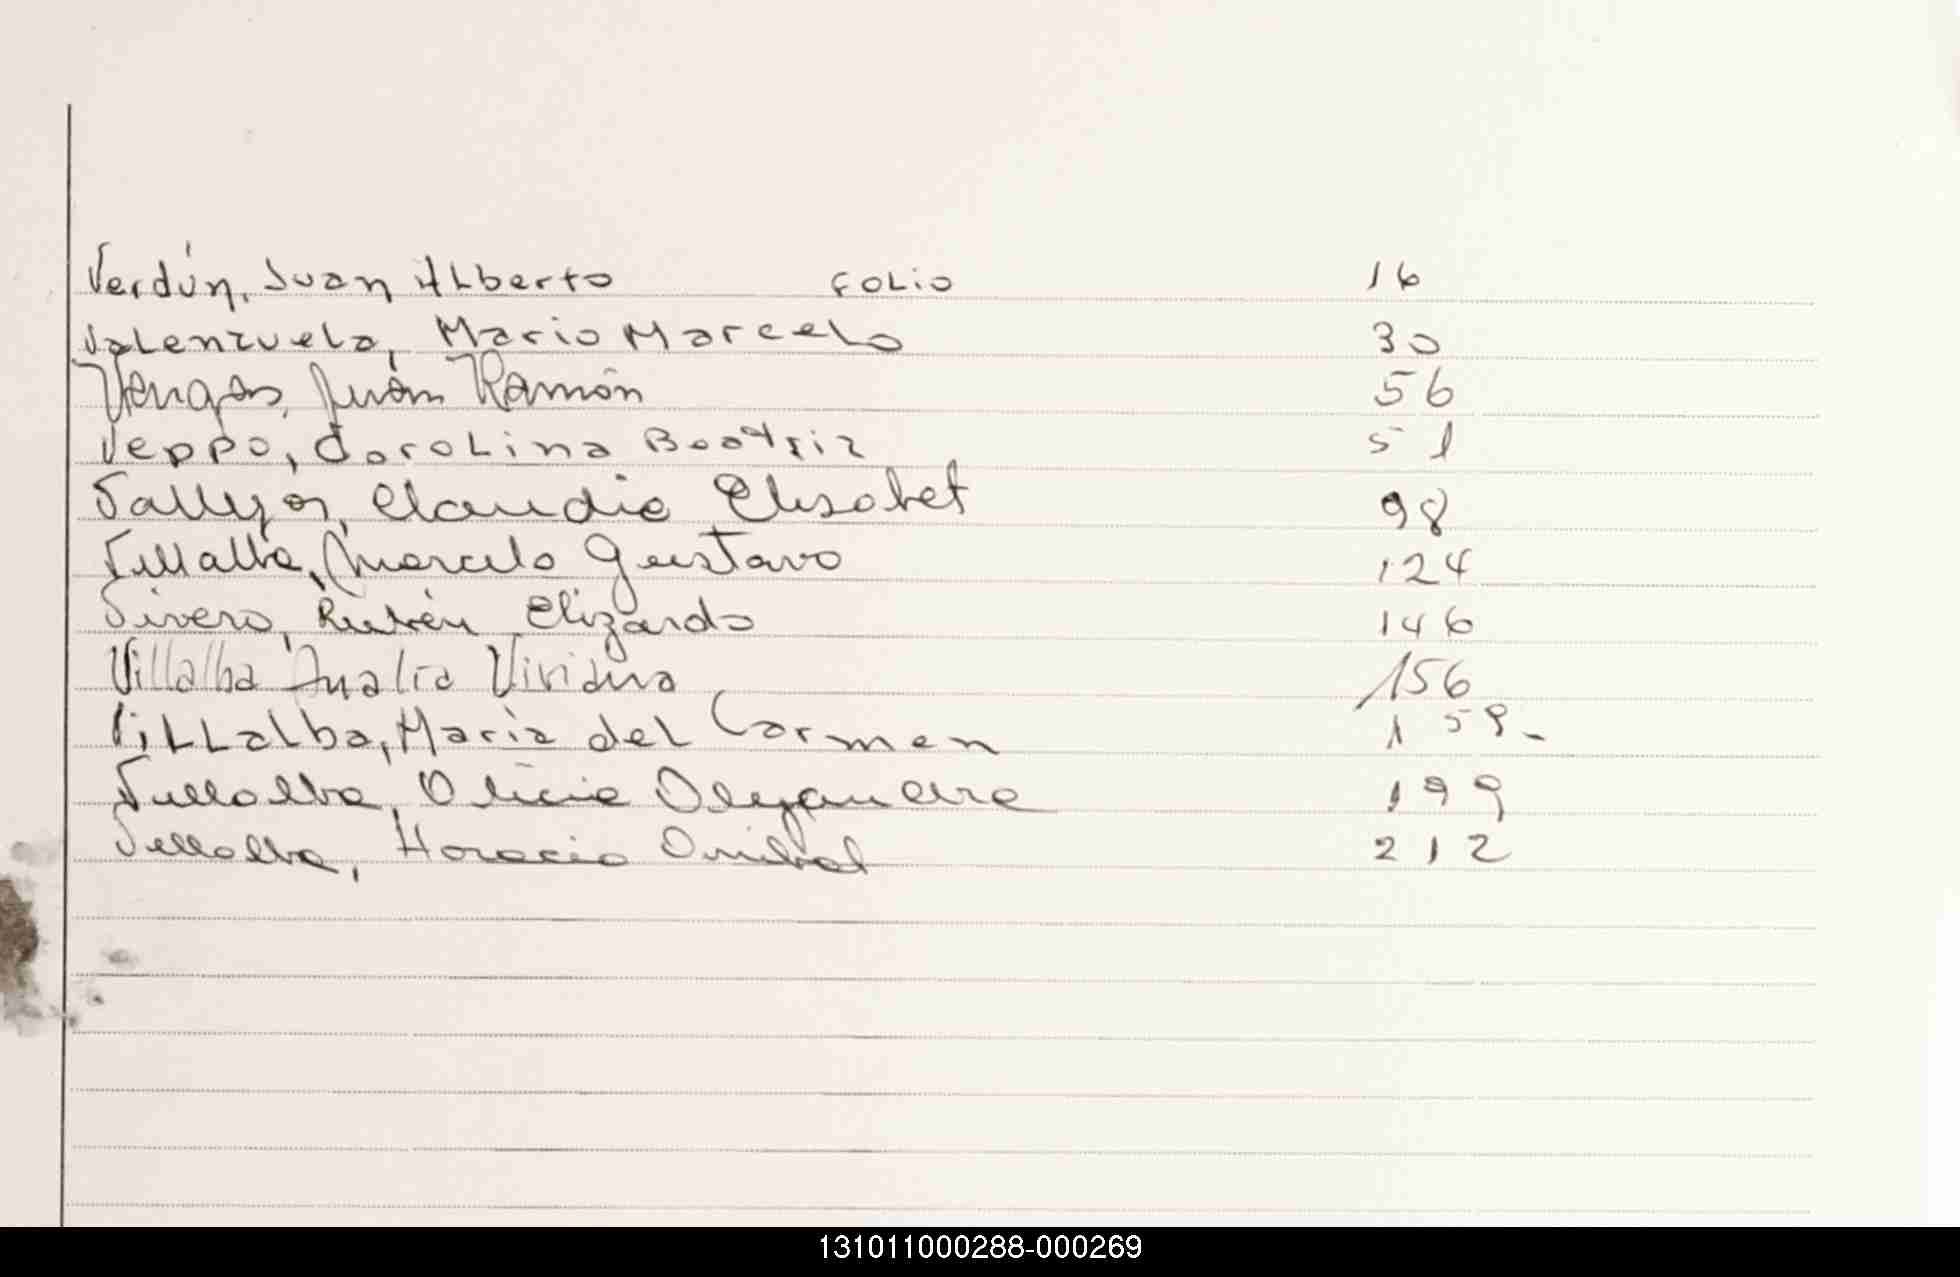 Verdún, Juan Alberto FOLIO 16
Valenzuela, Mario Marcelo 30
Vengas, Juán Ramón 56
Veppo, Carolina Beatriz 51
Vallejos, Claudia Elisabet 98
Villalba, Marcelo Gustavo 124
Vivero, Rubén Elizardo 146
Villalba Analía Viviana 156
Villalba, María del Carmen 159-
Villalba, Alicia Alejandra 199
Villalba, Horacio Anibal 212
131011000288-000269